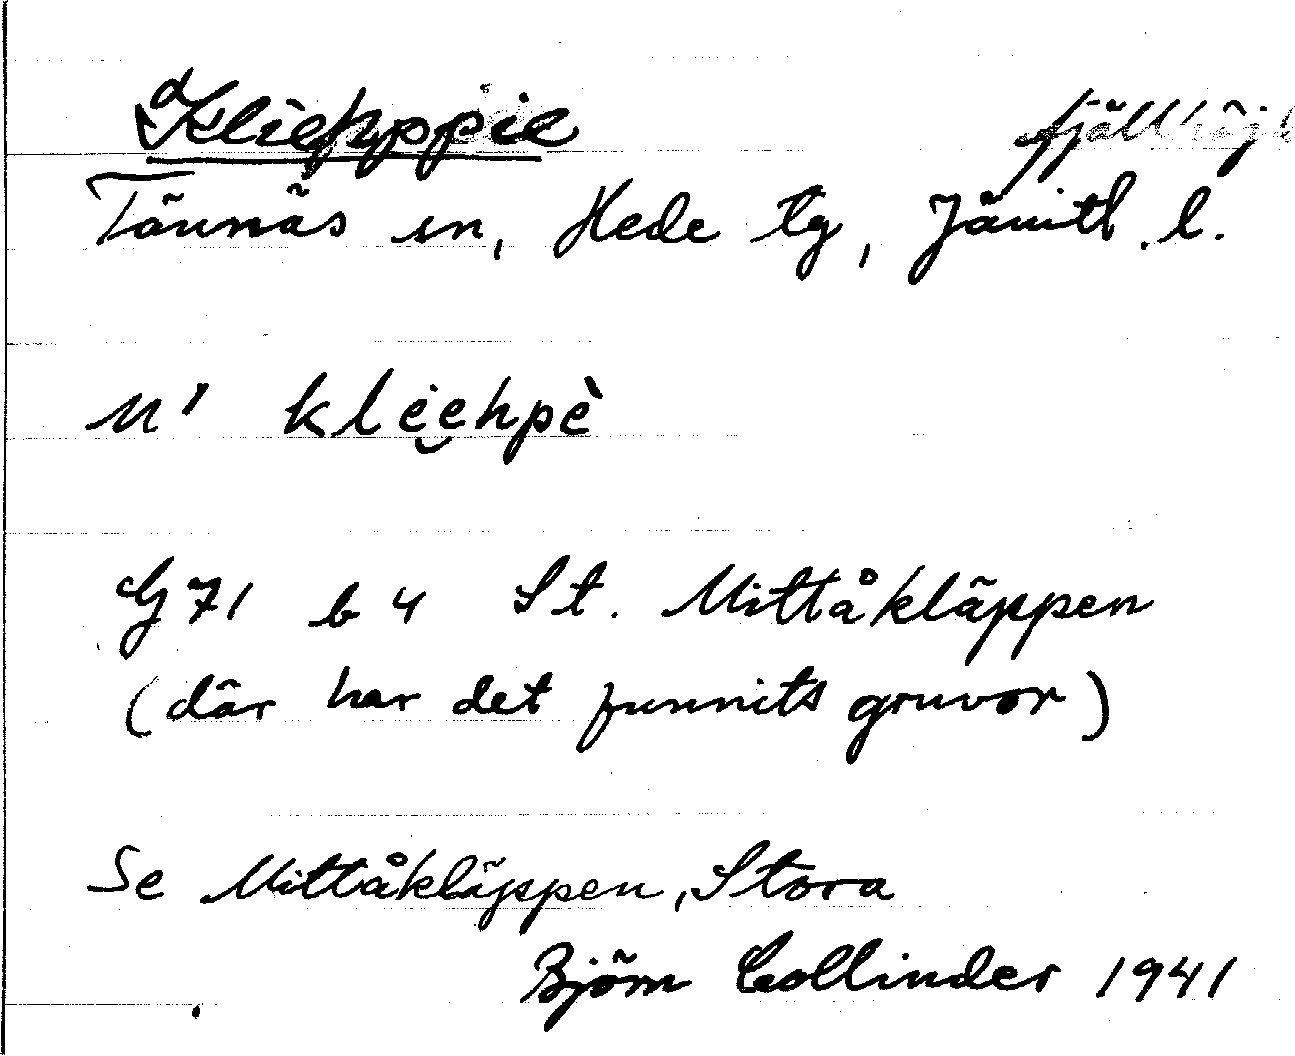 Kliehppie fjällhöjd
Tännäs sn, Hede tg, Jämtl. l.
N' kleehpè
G 71 b 4 St. Mittåkläppen
(där har det funnits gruvor)
Se Mittåkläppen, Stora
Björn Collinder 1941